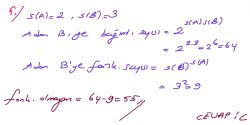 5.) s(A)=2 , s(B)=3
A dan B'ye bağıntı sayısı = 2^{s(A).s(B)}
= 2^{2.3} = 2^6 = 64
A dan B'ye fonk. sayısı = s(B)^{s(A)}
= 3^2 = 9
fonk. olmayan = 64-9=55//
CEVAP:C